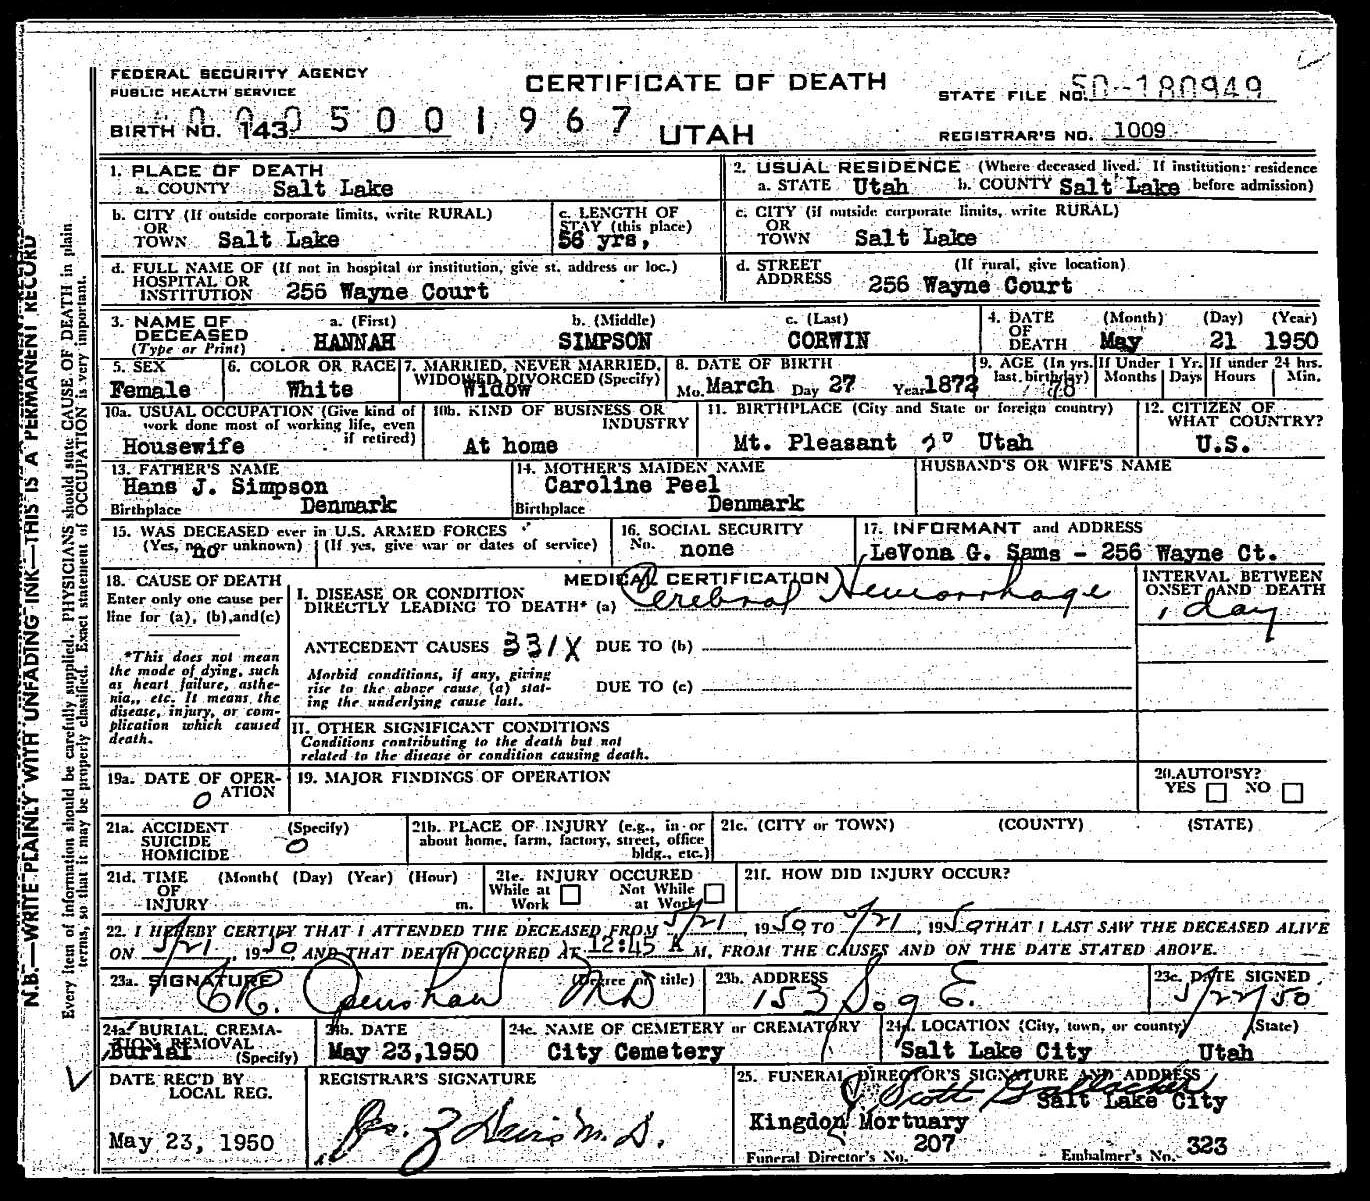 FEDERAL SECURITY AGENCY
PUBLIC HEALTH SERVICE
CERTIFICATE OF DEATH
UTAH
STATE FILE NO. 50-180949
BIRTH NO. 143 0005001967
REGISTRAR'S NO. 1009
1. PLACE OF DEATH
a. COUNTY Salt Lake
2. USUAL RESIDENCE (Where deceased lived. If institution: residence before admission)
a. STATE Utah b. COUNTY Salt Lake
b. CITY (If outside corporate limits, write RURAL)
OR
TOWN Salt Lake
c. LENGTH OF
STAY (this place)
56 yrs,
c. CITY (if outside corporate limits, write RURAL)
OR
TOWN Salt Lake
d. FULL NAME OF (If not in hospital or institution, give st. address or loc.)
HOSPITAL OR
INSTITUTION 256 Wayne Court
d. STREET (If rural, give location)
ADDRESS 256 Wayne Court
3. NAME OF DECEASED (Type or Print)
a. (First) b. (Middle) c. (Last)
HANNAH SIMPSON CORWIN
4. DATE OF DEATH (Month) (Day) (Year)
May 21 1950
5. SEX
Female
6. COLOR OR RACE
White
7. MARRIED, NEVER MARRIED, WIDOWED, DIVORCED (Specify)
Widow
8. DATE OF BIRTH
Mo. March Day 27 Year 1872
9. AGE (In yrs. last birthday) 78
If Under 1 Yr. Months Days
If under 24 hrs. Hours Min.
10a. USUAL OCCUPATION (Give kind of work done most of working life, even if retired)
Housewife
10b. KIND OF BUSINESS OR INDUSTRY
At home
11. BIRTHPLACE (City and State or foreign country)
Mt. Pleasant Utah
12. CITIZEN OF WHAT COUNTRY?
U.S.
13. FATHER'S NAME
Hans J. Simpson
Birthplace Denmark
14. MOTHER'S MAIDEN NAME
Caroline Peel
Birthplace Denmark
HUSBAND'S OR WIFE'S NAME
15. WAS DECEASED ever in U.S. ARMED FORCES
(Yes, no, or unknown) (If yes, give war or dates of service)
no
16. SOCIAL SECURITY
No. none
17. INFORMANT and ADDRESS
LeVona G. Sams - 256 Wayne Ct.
18. CAUSE OF DEATH
Enter only one cause per
line for (a), (b), and (c)
*This does not mean
the mode of dying, such
as heart failure, asthe-
nia,, etc. It means the
disease, injury, or com-
plication which caused
death.
MEDICAL CERTIFICATION
I. DISEASE OR CONDITION
DIRECTLY LEADING TO DEATH* (a) Cerebral Hemorrhage
ANTECEDENT CAUSES 331X DUE TO (b)
Morbid conditions, if any, giving
rise to the above cause (a) stat-
ing the underlying cause last.
DUE TO (c)
II. OTHER SIGNIFICANT CONDITIONS
Conditions contributing to the death but not
related to the disease or condition causing death.
INTERVAL BETWEEN
ONSET AND DEATH
1 day
19a. DATE OF OPER-
ATION
0
19. MAJOR FINDINGS OF OPERATION
20. AUTOPSY?
YES NO
21a. ACCIDENT (Specify)
SUICIDE
HOMICIDE
0
21b. PLACE OF INJURY (e.g., in or
about home, farm, factory, street, office
bldg., etc.)
21c. (CITY or TOWN) (COUNTY) (STATE)
21d. TIME (Month( (Day) (Year) (Hour)
OF
INJURY m.
21e. INJURY OCCURED
While at Work
Not While at Work
21f. HOW DID INJURY OCCUR?
22. I HEREBY CERTIFY THAT I ATTENDED THE DECEASED FROM 5/21, 1950 TO 5/21, 1950 THAT I LAST SAW THE DECEASED ALIVE
ON 5/21, 1950, AND THAT DEATH OCCURED AT 12:45 A M, FROM THE CAUSES AND ON THE DATE STATED ABOVE.
23a. SIGNATURE (Degree or title)
Openshaw MD
23b. ADDRESS
153 So 9 E.
23c. DATE SIGNED
5/22/50
24a. BURIAL, CREMA-
TION REMOVAL
(Specify)
Burial
24b. DATE
May 23,1950
24c. NAME OF CEMETERY or CREMATORY
City Cemetery
24d. LOCATION (City, town, or county) (State)
Salt Lake City Utah
DATE REC'D BY
LOCAL REG.
May 23, 1950
REGISTRAR'S SIGNATURE
25. FUNERAL DIRECTOR'S SIGNATURE AND ADDRESS
Scott Gallacher
Salt Lake City
Kingdon Mortuary
Funeral Director's No. 207 Embalmer's No. 323
N.B.—WRITE PLAINLY WITH UNFADING INK—THIS IS A PERMANENT RECORD
Every item of information should be carefully supplied. PHYSICIANS should state CAUSE OF DEATH in plain
terms, so that it may be properly classified. Exact statement of OCCUPATION is very important.